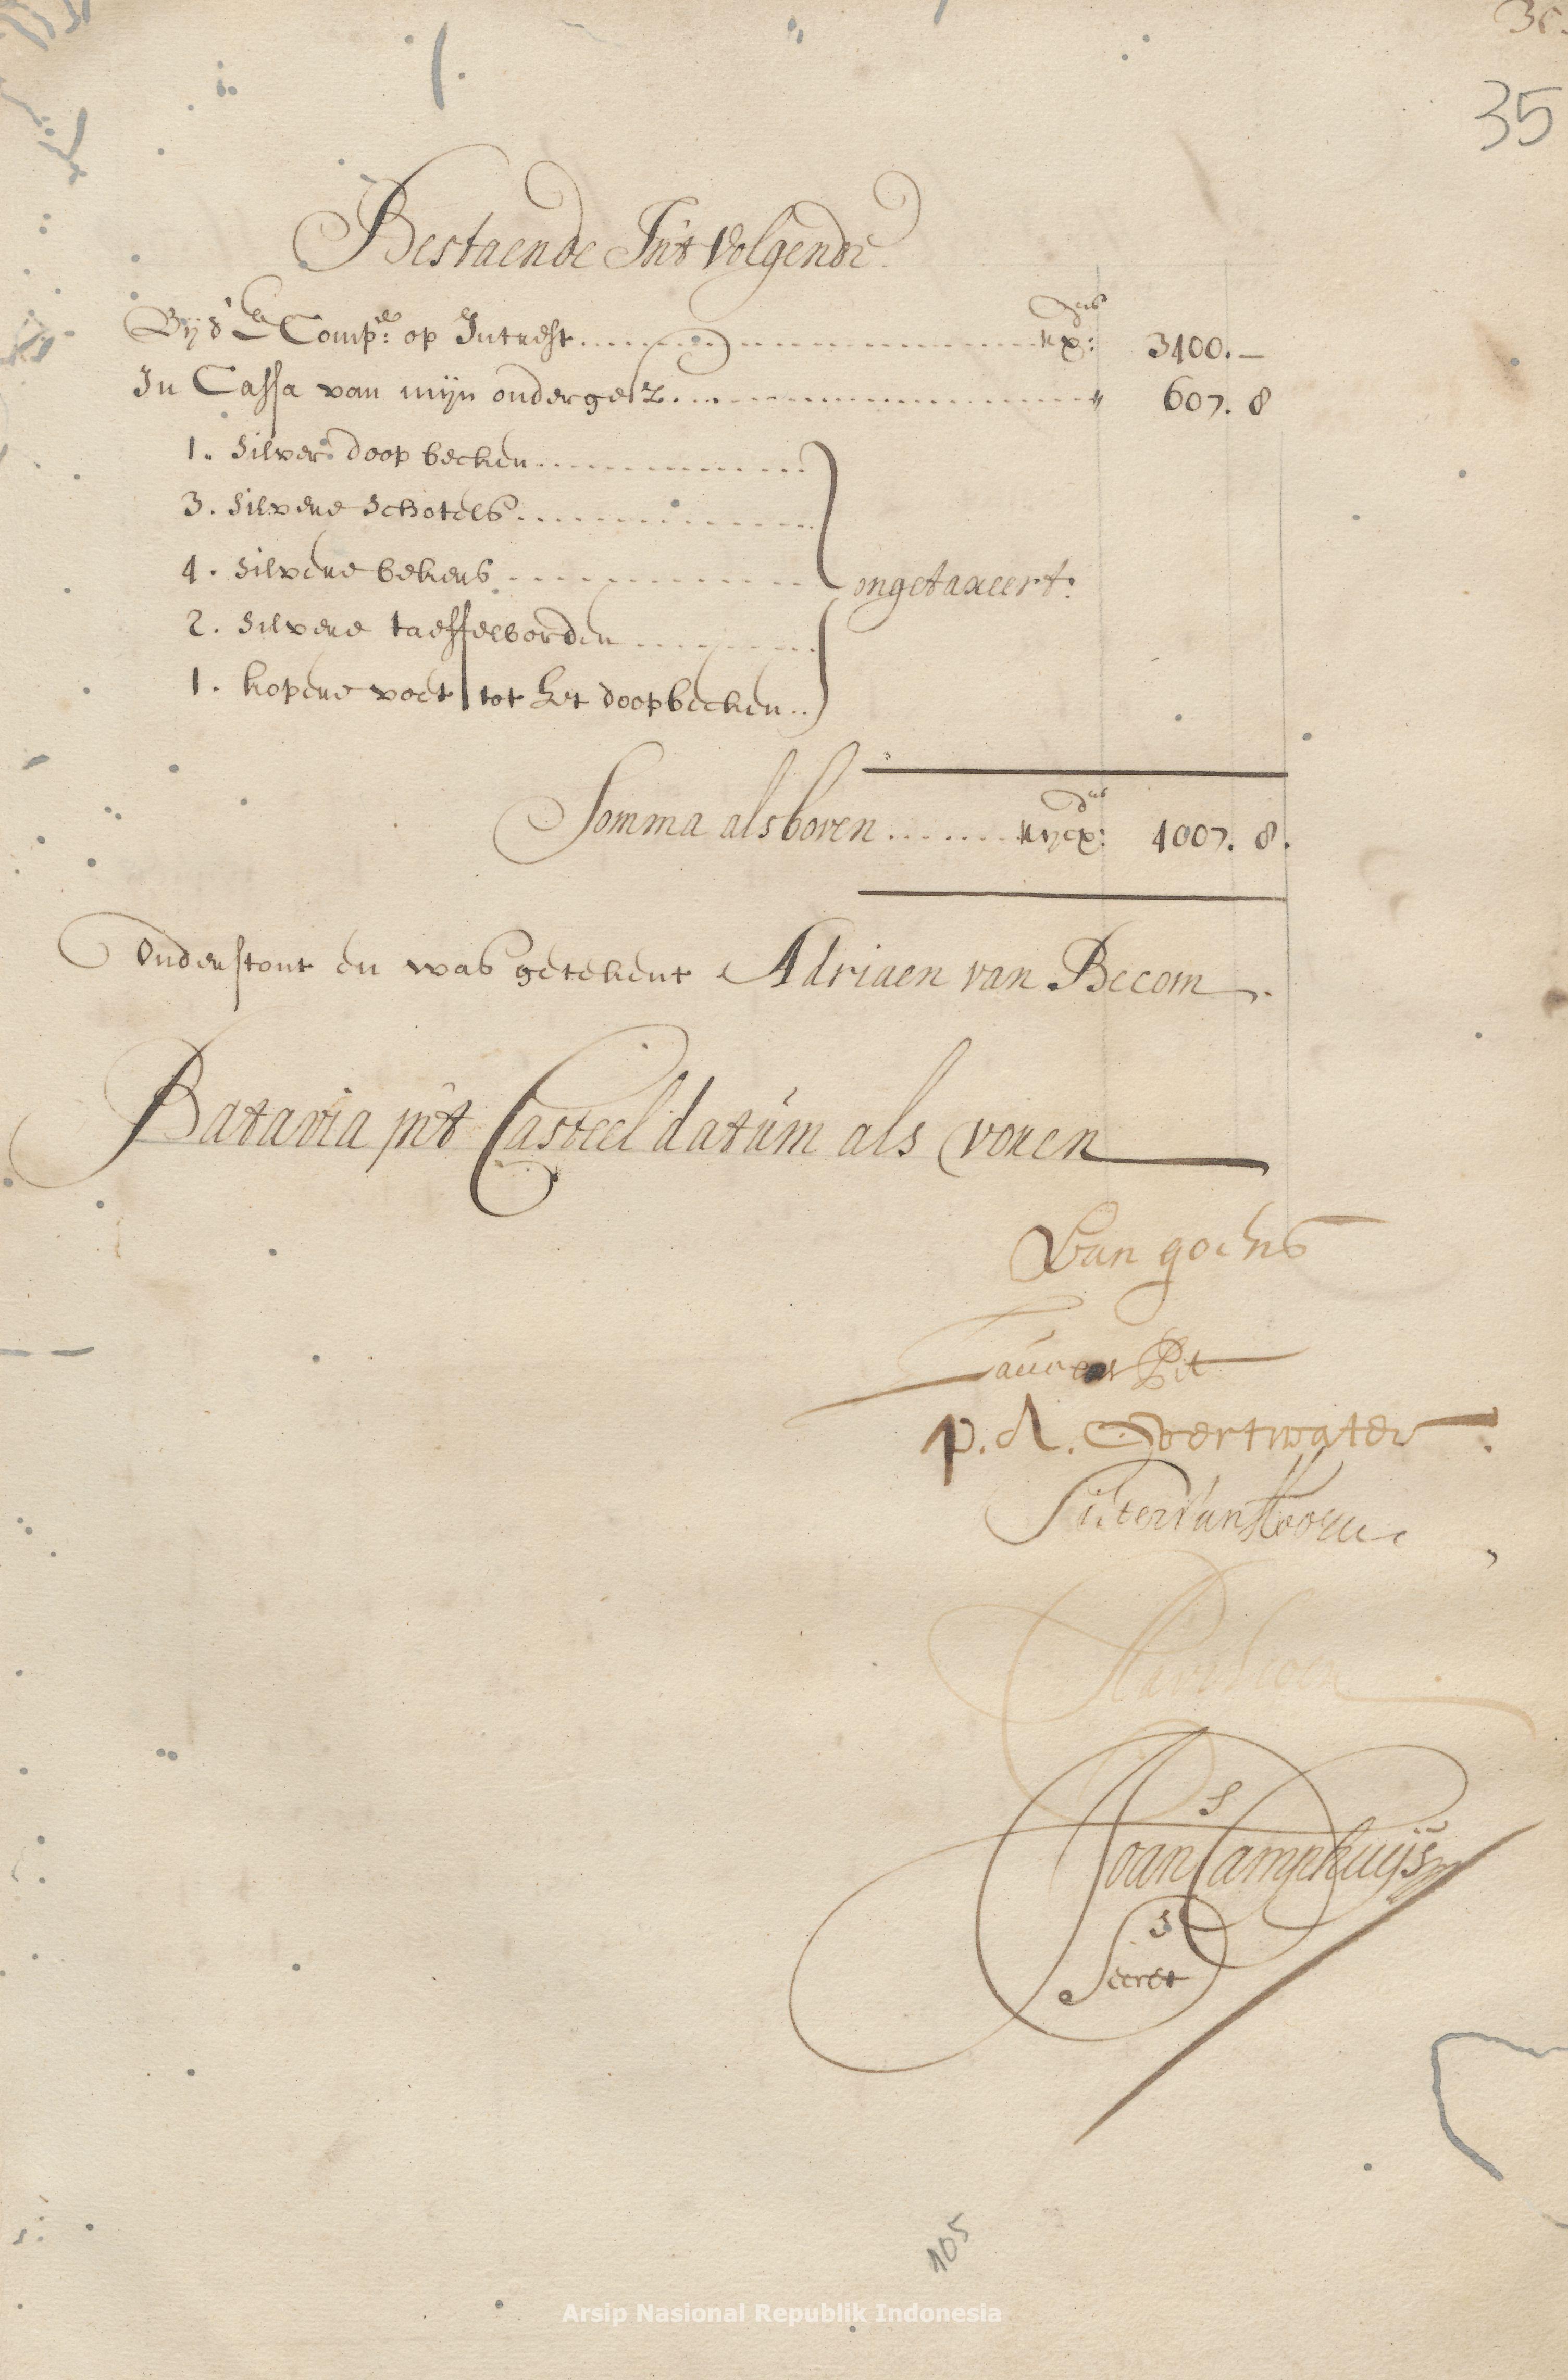 35
Bestaende In't Volgende.
Bij d' E. Comp:e op Intrest rx:ds 3400.—
In Cassa van mijn onderget. " 607. 8
1. silver doop becken
3. silvere schotels
4. silvere bekers
ongetaxeert:
2. silvere taeffelborden
1. kopere voet tot het doopbecken
Somma als boven rijcx:ds 4007. 8.
Onderstont en was getekent Adriaen van Becom
Batavia in't Casteel datum als voren
Van goens
Laurens Pit
p. A. Overtwater
Pieter Van Hoorn
Joan Camphuijs
Secret.s
105
Arsip Nasional Republik Indonesia